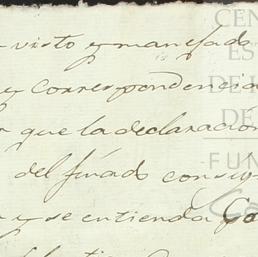 visto y manejado
y correspondencia
que la declaración
del finado consig
y se entienda Co
CEN
ES
DE
DE
FUN